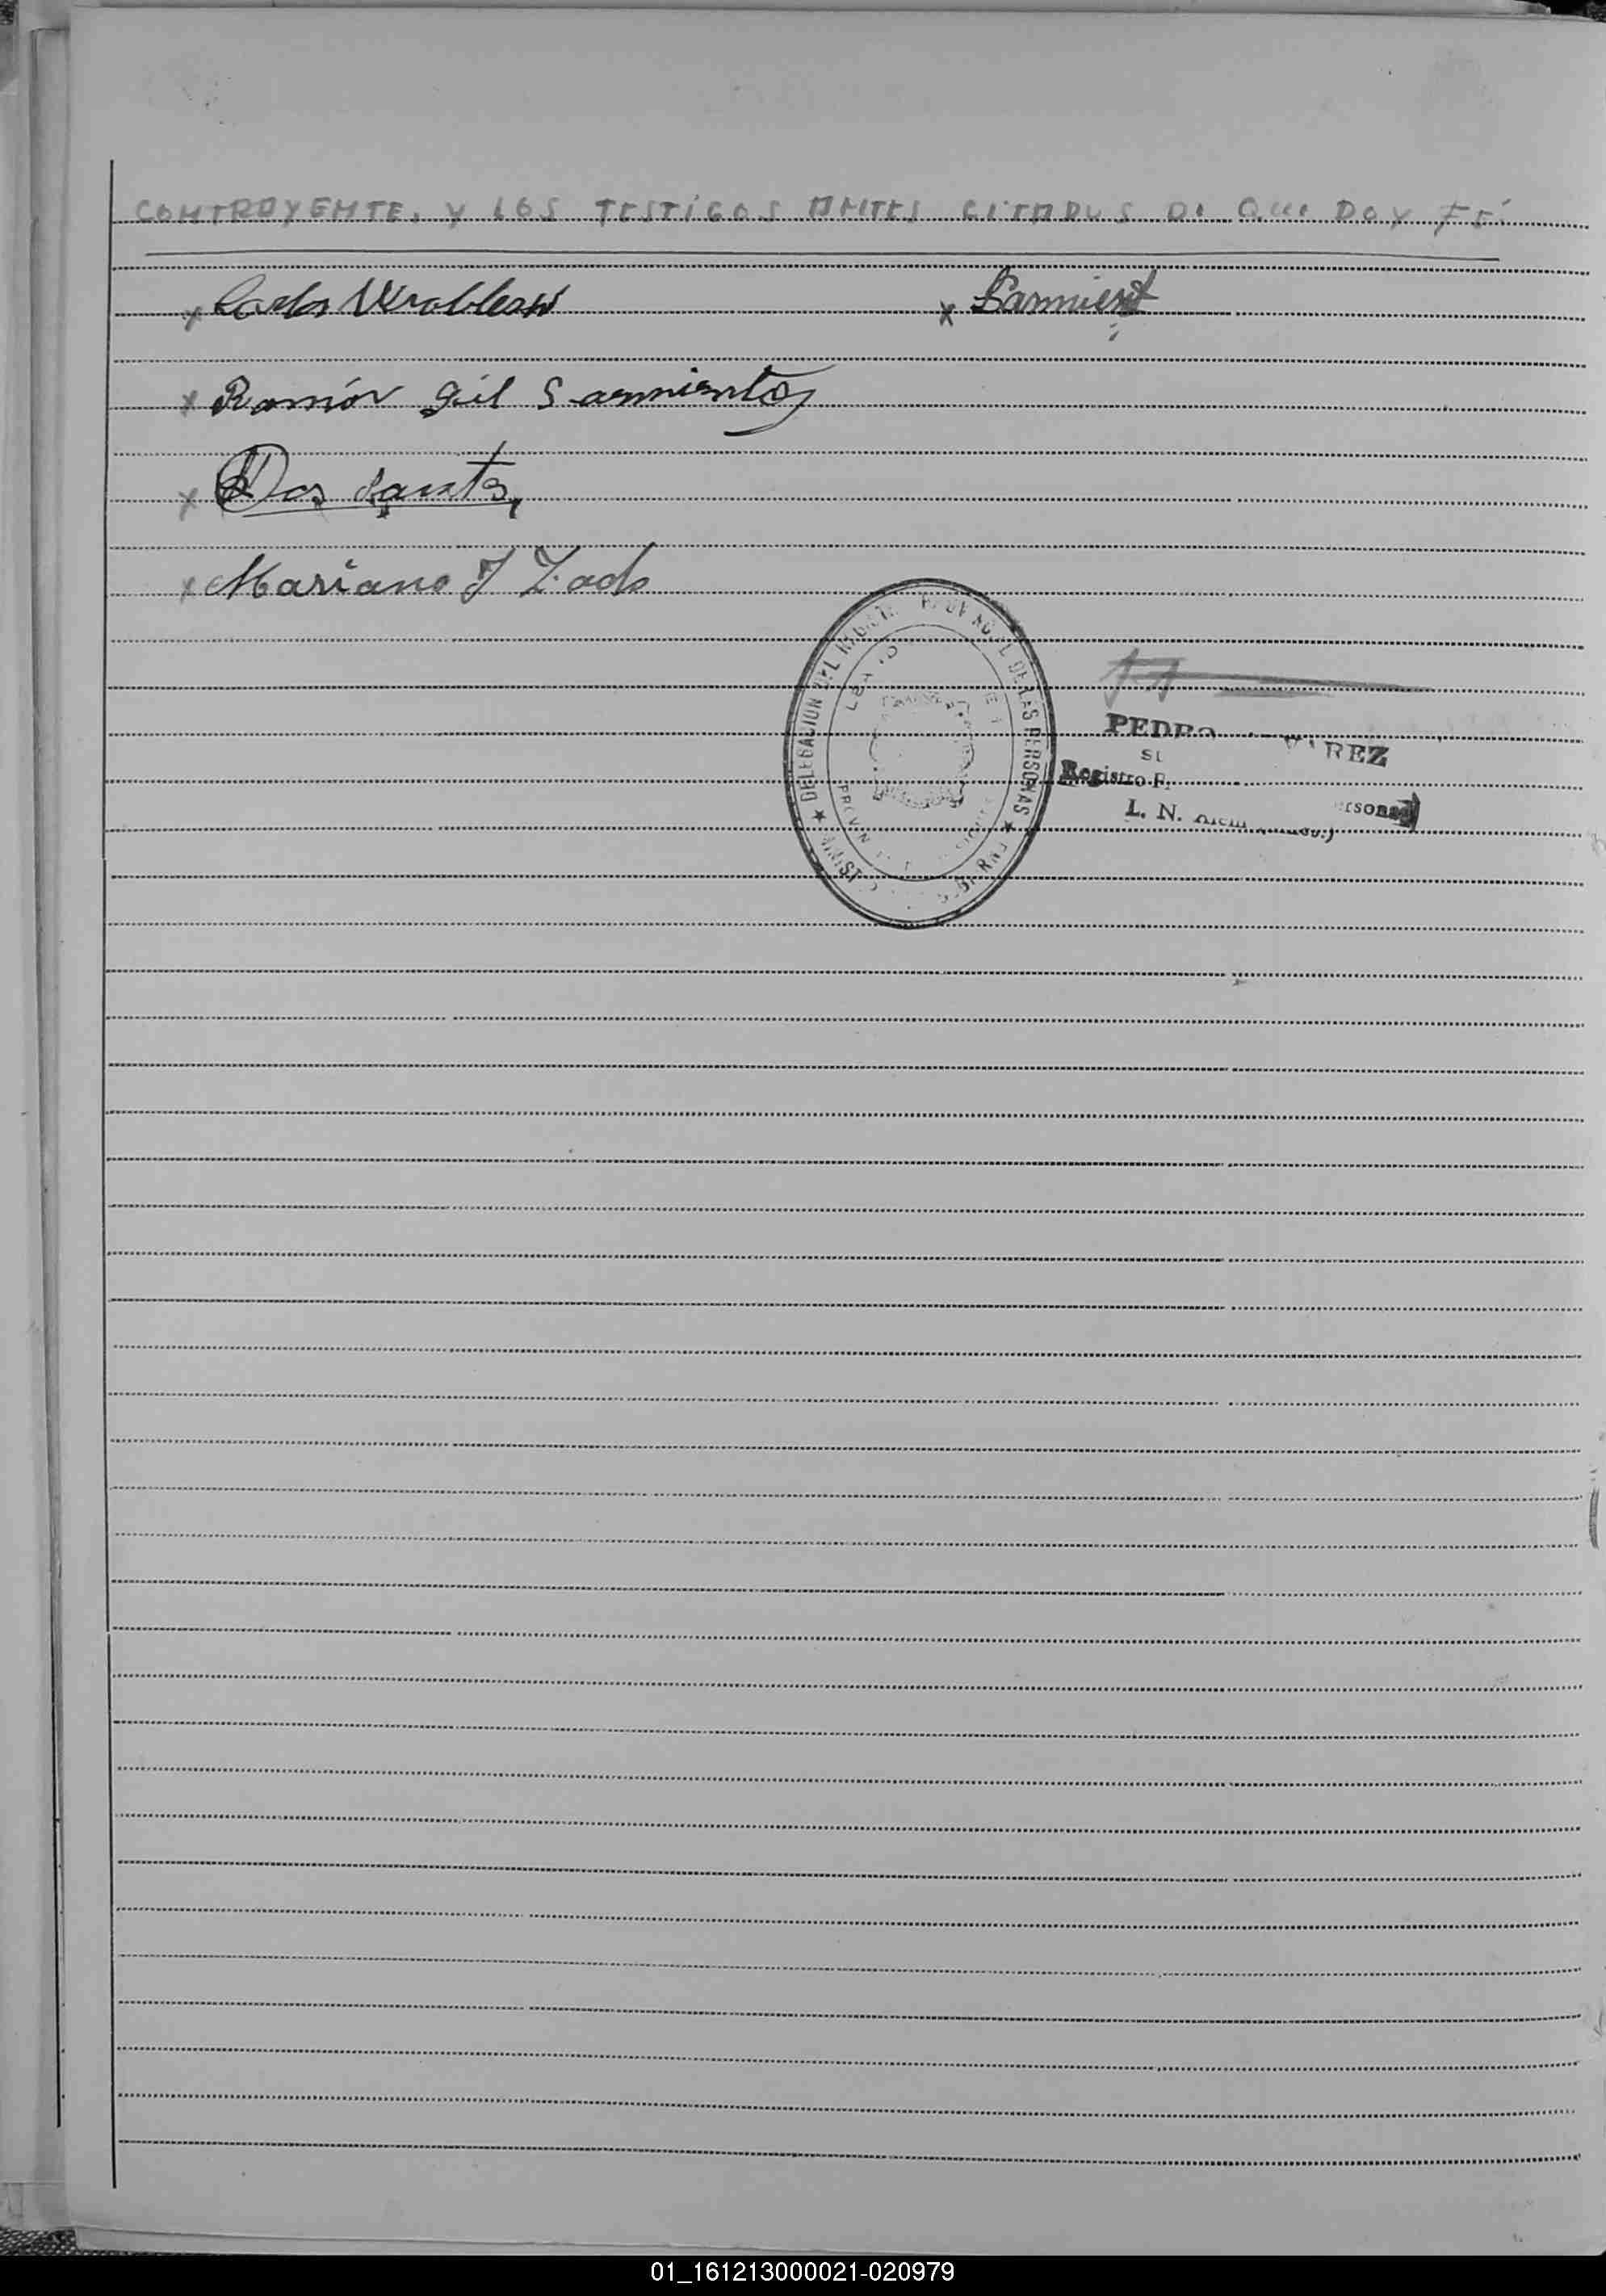 CONTRAYENTE, Y LOS TESTIGOS ANTES CITADOS DE QUE DOY FÉ
x Carlos Wrobleski x Sarmient
x Ramón Gil Sarmiento
x Dos Santos
x Mariano J Zado
DELEGACION DEL PROVINCIAL DE LAS PERSONAS
PEDRO
Registro
L. N. Alem
01_161213000021-020979